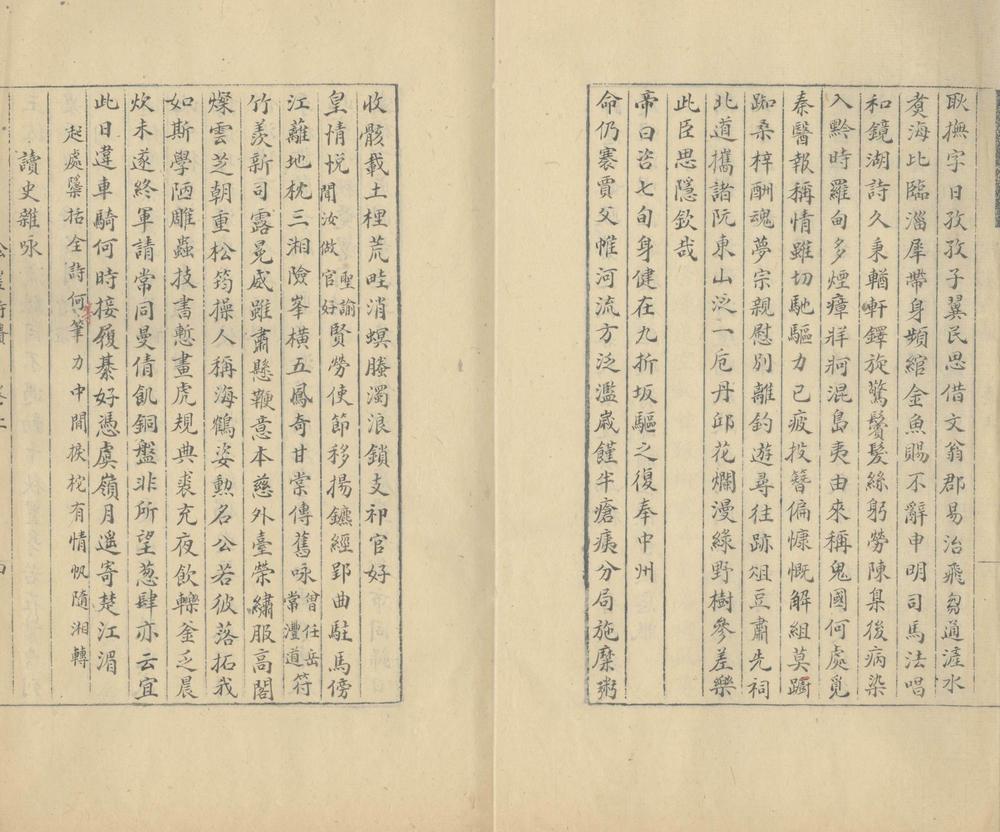 耿撫字日孜孜子翼民思借文翁郡易治飛芻通滻水
煑海比臨淄犀帶身頻綰金魚賜不辭申明司馬法唱
和鏡湖詩久秉輶軒鐸旋驚鬢髮絲躬勞陳臬後病染
入黔時羅甸多煙瘴牂牁混島夷由來稱鬼國何處覓
秦醫報稱情雖切馳驅力已疲投簪偏慷慨解組莫踟
踟桑梓酬魂夢宗親慰別離釣遊尋往跡俎豆肅先祠
北道攜諸阮東山泛一卮丹邱花爛漫綠野樹參差樂
此臣思隱欽哉
帝曰咨七旬身健在九折坂驅之復奉中州
命仍褰賈父帷河流方泛濫嵗饉半瘡痍分局施糜粥
收骸載土梩荒畦消螟螣濁浪鎖支祁官好
皇情悦聞汝做官好聖諭賢勞使節移揚鑣經郢曲駐馬傍
江蘺地枕三湘險峯橫五鳳奇甘棠傳舊咏曾任岳常灃道符
竹羡新司露冕威雖肅懸鞭意本慈外臺榮繡服高閣
燦雲芝朝重松筠操人稱海鶴姿勲名公若彼落拓我
如斯學陋雕蟲技書慙畫虎規典裘充夜飲轢釜乏晨
炊未遂終軍請常同曼倩飢銅盤非所望葱肆亦云宜
此日違車騎何時接履綦好憑虞嶺月遥寄楚江湄
起處檃括全詩何等筆力中間捩柁有情帆隨湘轉
讀史雜咏